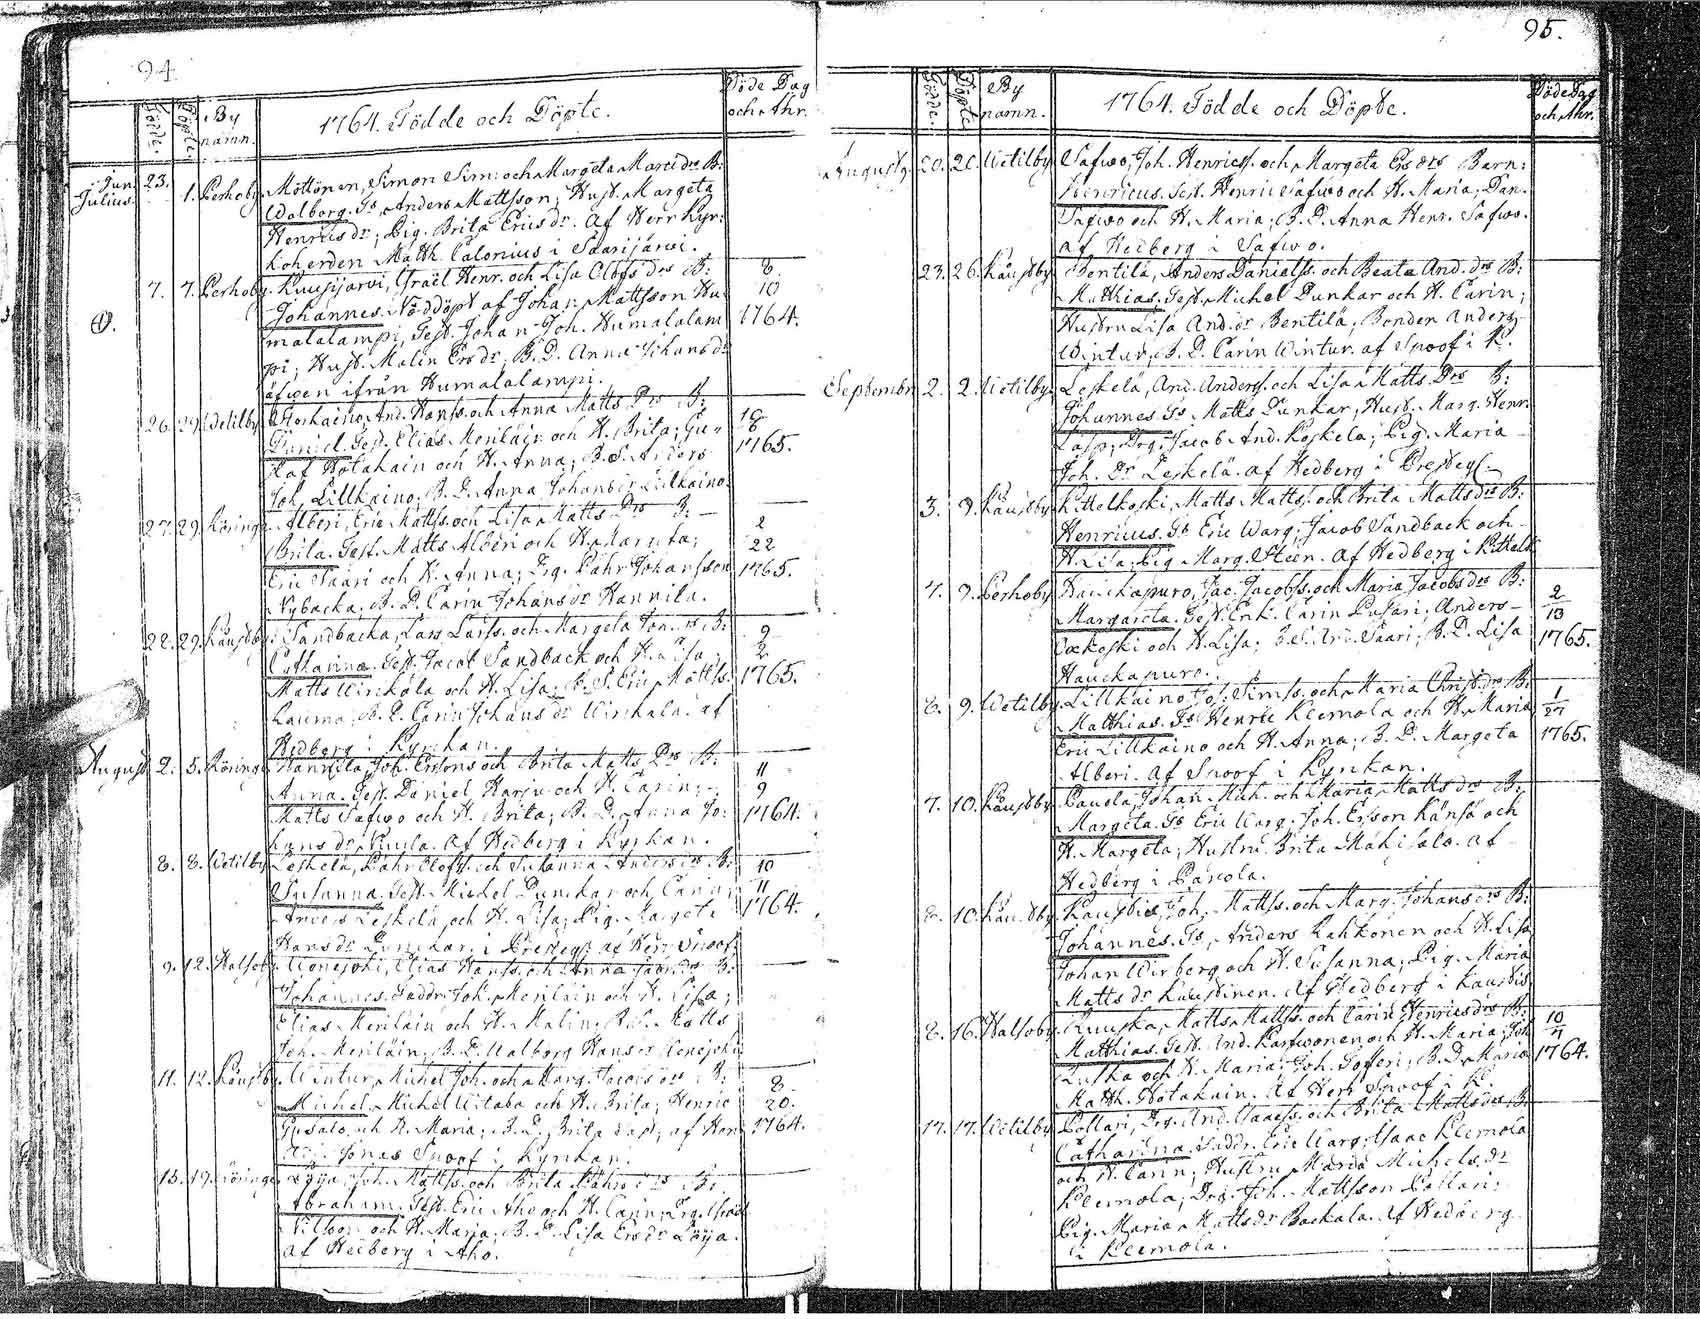 94
Födde.
Döpte.
By
namn.
1764. Födde och Döpte.
Döde Dag
och Åhr.
Jun. 23.
Julius. 1. Perhoby. Möttönen, Simon Sim: och Margeta Marci drs B:
Walborg. Ts. Anders Mattsson; Hust. Margeta
Henricsdr; Pig. Brita Ericsdr. Af Herr Kyr-
koherden Matth. Calonius i Saarijärvi.
7. 7. Perhoby. Kuusijärvi, Israel Henr. och Lisa Olofs drs B: 8.
Johannes. Nöddöpt af Johan Mattsson Hu- 10
malalampi, Test. Johan Joh. Humalalam 1764.
pi; Hust. Malin Ersdr; B. D. Anna Johansdr
äfwen ifrån Humalalampi.
26. 29. Wetilby. Storkaino, And. Hanss. och Anna Matts Drs B: 18
Daniel. Test. Elias Meriläin och H. Brita; Gu- 8
staf Hotakain och H. Anna; B. S. Anders 1765.
Joh. Lillkaino; B. D. Anna Johansdr Lillkaino.
27. 29. Röringe. Alberi, Eric Mattss. och Lisa Matts Drs B: 2
Brita. Test. Matts Alberi och H. Margeta; 22
Eric Saari och H. Anna; Drg. Pähr Johansson 1765.
Nybacka; B. D. Carin Johansdr Hannila.
22. 29. Käustby. Sandbacka, Lars Larss. och Margeta Jon. drs B: 9
Catharina. Test. Jacob Sandback och H. Lisa; 2
Matts Wirkala och H. Lisa; B. S. Eric Mattss. 1765.
Lauma; B. D. Carin Johans dr Wirkala. af
Hedberg i Kyrkan.
August. 2. 5. Röringe. Hannila, Joh. Erssons och Brita Matts Drs B: 11
Anna. Test. Daniel Harju och H. Carin; 9
Matts Safwo och H. Brita; B. D. Anna Jo- 1764.
hans dr Puula. Af Hedberg i Kyrkan.
8. 8. Wetilby. Leskelä, Pähr Olofss. och Susanna Anders drs B: 10
Susanna. Test. Michel Dunckar och Carin; 11
Anders Leskelä och H. Lisa; Pig. Margeta 1764.
Hansdr Dunckar. i Presteg. af Herr Snoof
9. 12. Halsoby. Wonejoki, Elias Hanss. och Anna Jacobs drs B:
Johannes. Faddr. Joh. Meriläin och H. Lisa;
Elias Meriläin och H. Malin; B. S. Matts
Joh. Meriläin; B. D. Walborg Hansdr Wonejoki
11. 12. Käustby. Wintur, Michel Joh. och Marg. Jacobs drs B: 8
Michel. Michel Witaba och H. Brita; Henric 20.
och H. Maria; B. D. Brita 1764.
Jonas Snoof i Kyrkan.
15. 19. Röringe. Löija, Joh. Mattss. och Brita Pährs drs B:
Abraham. Test. Eric Aho och H. Carin; Drg. Israel
Nilsson och H. Maria; B. D. Lisa Ersdr Löija.
Af Hedberg i Aho.
95.
Födde.
Döpte.
By
namn.
1764. Födde och Döpte.
Döde Dag
och Åhr.
August. 20. 20. Wetilby. Safwo, Joh. Henricss. och Margeta Ersdrs Barn:
Henricus. Test. Henric Safwo och H. Maria; Dan.
Safwo och H. Maria; B. D. Anna Henr. Safwo.
af Hedberg i Safwo.
23. 26. Käustby. Bentilä, Anders Danielss. och Beata And. drs B:
Matthias. Test. Michel Dunkar och H. Carin;
Hustru Lisa And. dr Bentilä; Bonden Anders
Wintur, B. D. Carin Wintur. af Snoof i K.
Septembr. 2. 2. Wetilby. Leskelä, And. Anderss. och Lisa Matts Drs B:
Johannes. Ts. Matts Dunkar, Hust. Marg. Henr.
Drg. Jacob And. Koskela; Pig. Maria
Joh. Dr Leskelä. af Hedberg i Presteg.
3. 9. Käustby. Kittelkoski, Matts Mattss. och Brita Mattsdrs B:
Henricus. Ts. Eric Warg; Jacob Sandback och
H. Lisa; Pig. Marg. Steen. Af Hedberg i Kittelk
7. 9. Perhoby. Hauckapuro, Jac. Jacobss. och Maria Jacobsdrs B: 2
Margareta. Test. Enk. Carin Pusari; Anders 13
Oxkoski och H. Lisa; B. S. And. Saari; B. D. Lisa 1765.
Hauckapuro.
8. 9. Wetilby. Lillkaino, Jos. Simss. och Maria Christ. drs B: 1
Matthias. Ts. Henric Klemola och H. Maria 27
Eric Lillkaino och H. Anna; B. D. Margeta 1765.
Alberi. Af Snoof i Kyrkan.
7. 10. Käustby. Pauola, Johan Mich. och Maria Matts drs B:
Margeta. Ts. Eric Warg; Joh. Ersson Känsä och
H. Margeta; Hustru Brita Mäkisalo. af
Hedberg i Pauola.
8. 10. Käustby. Kaustis, Joh. Mattss. och Marg. Johans drs B:
Johannes. Ts. Anders Kahkonen och H. Lisa
Johan Wirberg och H. Susanna; Pig. Maria
Matts dr Kaustinen. Af Hedberg i Kaustis
8. 16. Halsoby. Ruuska, Matts Mattss. och Carin Henricsdrs B: 10
Matthias. Test. And. Karfwonen och H. Maria; Joh. 7
Ruska och H. Maria; Joh. Tofferi; B. D. Maria 1764.
Matth. Hotakain. Af Herr Snoof i K.
17. 17. Wetilby. Pollari, Drg. And. Isaacss. och Brita Mattsdrs B:
Catharina. Faddr. Eric Warg; Isaac Klemola
och H. Carin; Hustru Maria Michels dr
Klemola; Drg. Joh. Mattsson Pollari;
Pig. Maria Mattsdr Backala. Af Hedberg
i Klemola.